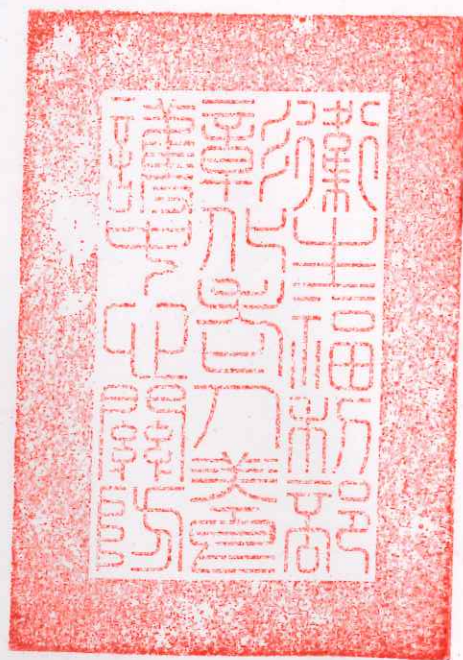 衛生福利部
彰化老人養
護中心關防